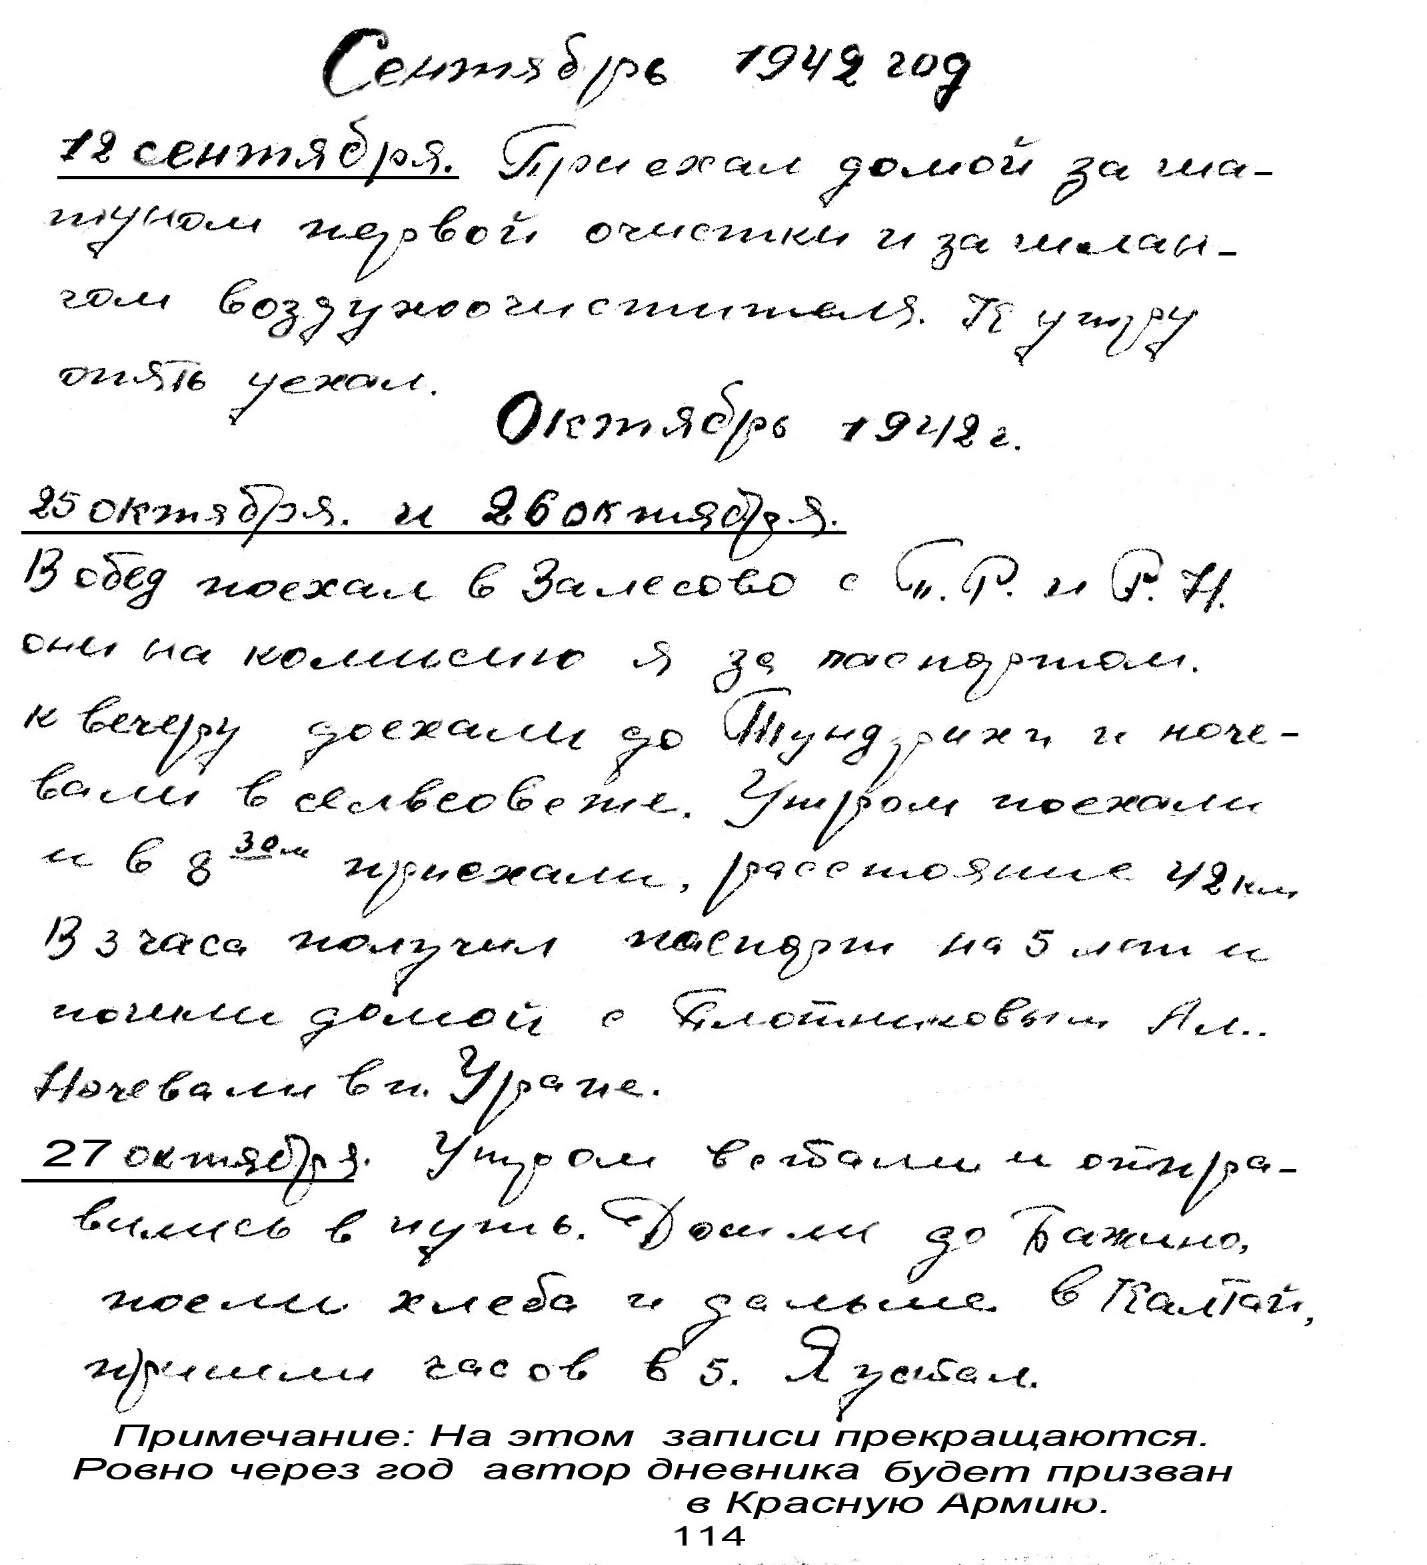 Сентябрь 1942 год
12 сентября. Приехал домой за ша-
туном первой очистки и за шлан-
гом воздухоочистителя. К утру
опять уехал.
Октябрь 1942 г.
25 октября. и 26 октября.
В обед поехал в Залесово с П. Р. и Р. Н.
они на комиссию я за паспортом.
к вечеру доехали до Тундрихи и ноче-
вали в сельсовете. Утром поехали
и в 8 30 м приехали, расстояние 42 км
В 3 часа получил паспорт на 5 лет и
пошли домой с Плотниковым Ал..
Ночевали в п. Уране.
27 октября. Утром встали и отпра-
вились в путь. Дошли до Бажино,
поели хлеба и дальше в Калтай,
пришли часов в 5. Я устал.
Примечание: На этом записи прекращаются.
Ровно через год автор дневника будет призван
в Красную Армию.
114